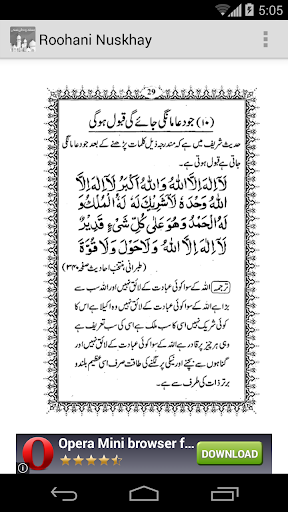 5:05
Roohani Nuskhay
29
(۱۰) جو دعا مانگی جائے گی قبول ہوگی
حدیث شریف میں ہے کہ مندرجہ ذیل کلمات پڑھنے کے بعد جو دعا مانگی
جاتی ہے قبول ہوتی ہے۔
لَآ اِلٰهَ اِلَّا اللّٰهُ وَاللّٰهُ اَكْبَرُ لَآ اِلٰهَ اِلَّا
اللّٰهُ وَحْدَهٗ لَا شَرِيْكَ لَهٗ لَهُ الْمُلْكُ وَ
لَهُ الْحَمْدُ وَهُوَ عَلٰى كُلِّ شَيْءٍ قَدِيْرٌ
لَآ اِلٰهَ اِلَّا اللّٰهُ وَلَا حَوْلَ وَلَا قُوَّةَ
(طبرانی منتخب احادیث صفحہ ۳۴۰)
ترجمہ اللہ کے سوا کوئی عبادت کے لائق نہیں اور اللہ سب سے
بڑا ہے اللہ کے سوا کوئی عبادت کے لائق نہیں وہ اکیلا ہے اس کا
کوئی شریک نہیں اسی کا سب ملک ہے اسی کی سب تعریف ہے
وہی ہر چیز پر قادر ہے اللہ کے سوا کوئی عبادت کے لائق نہیں اور
گناہوں سے بچنے اور نیکی پر لگنے کی طاقت صرف اسی عظیم بلند و
برتر ذات کی طرف سے ہے۔
Opera Mini browser f...
DOWNLOAD